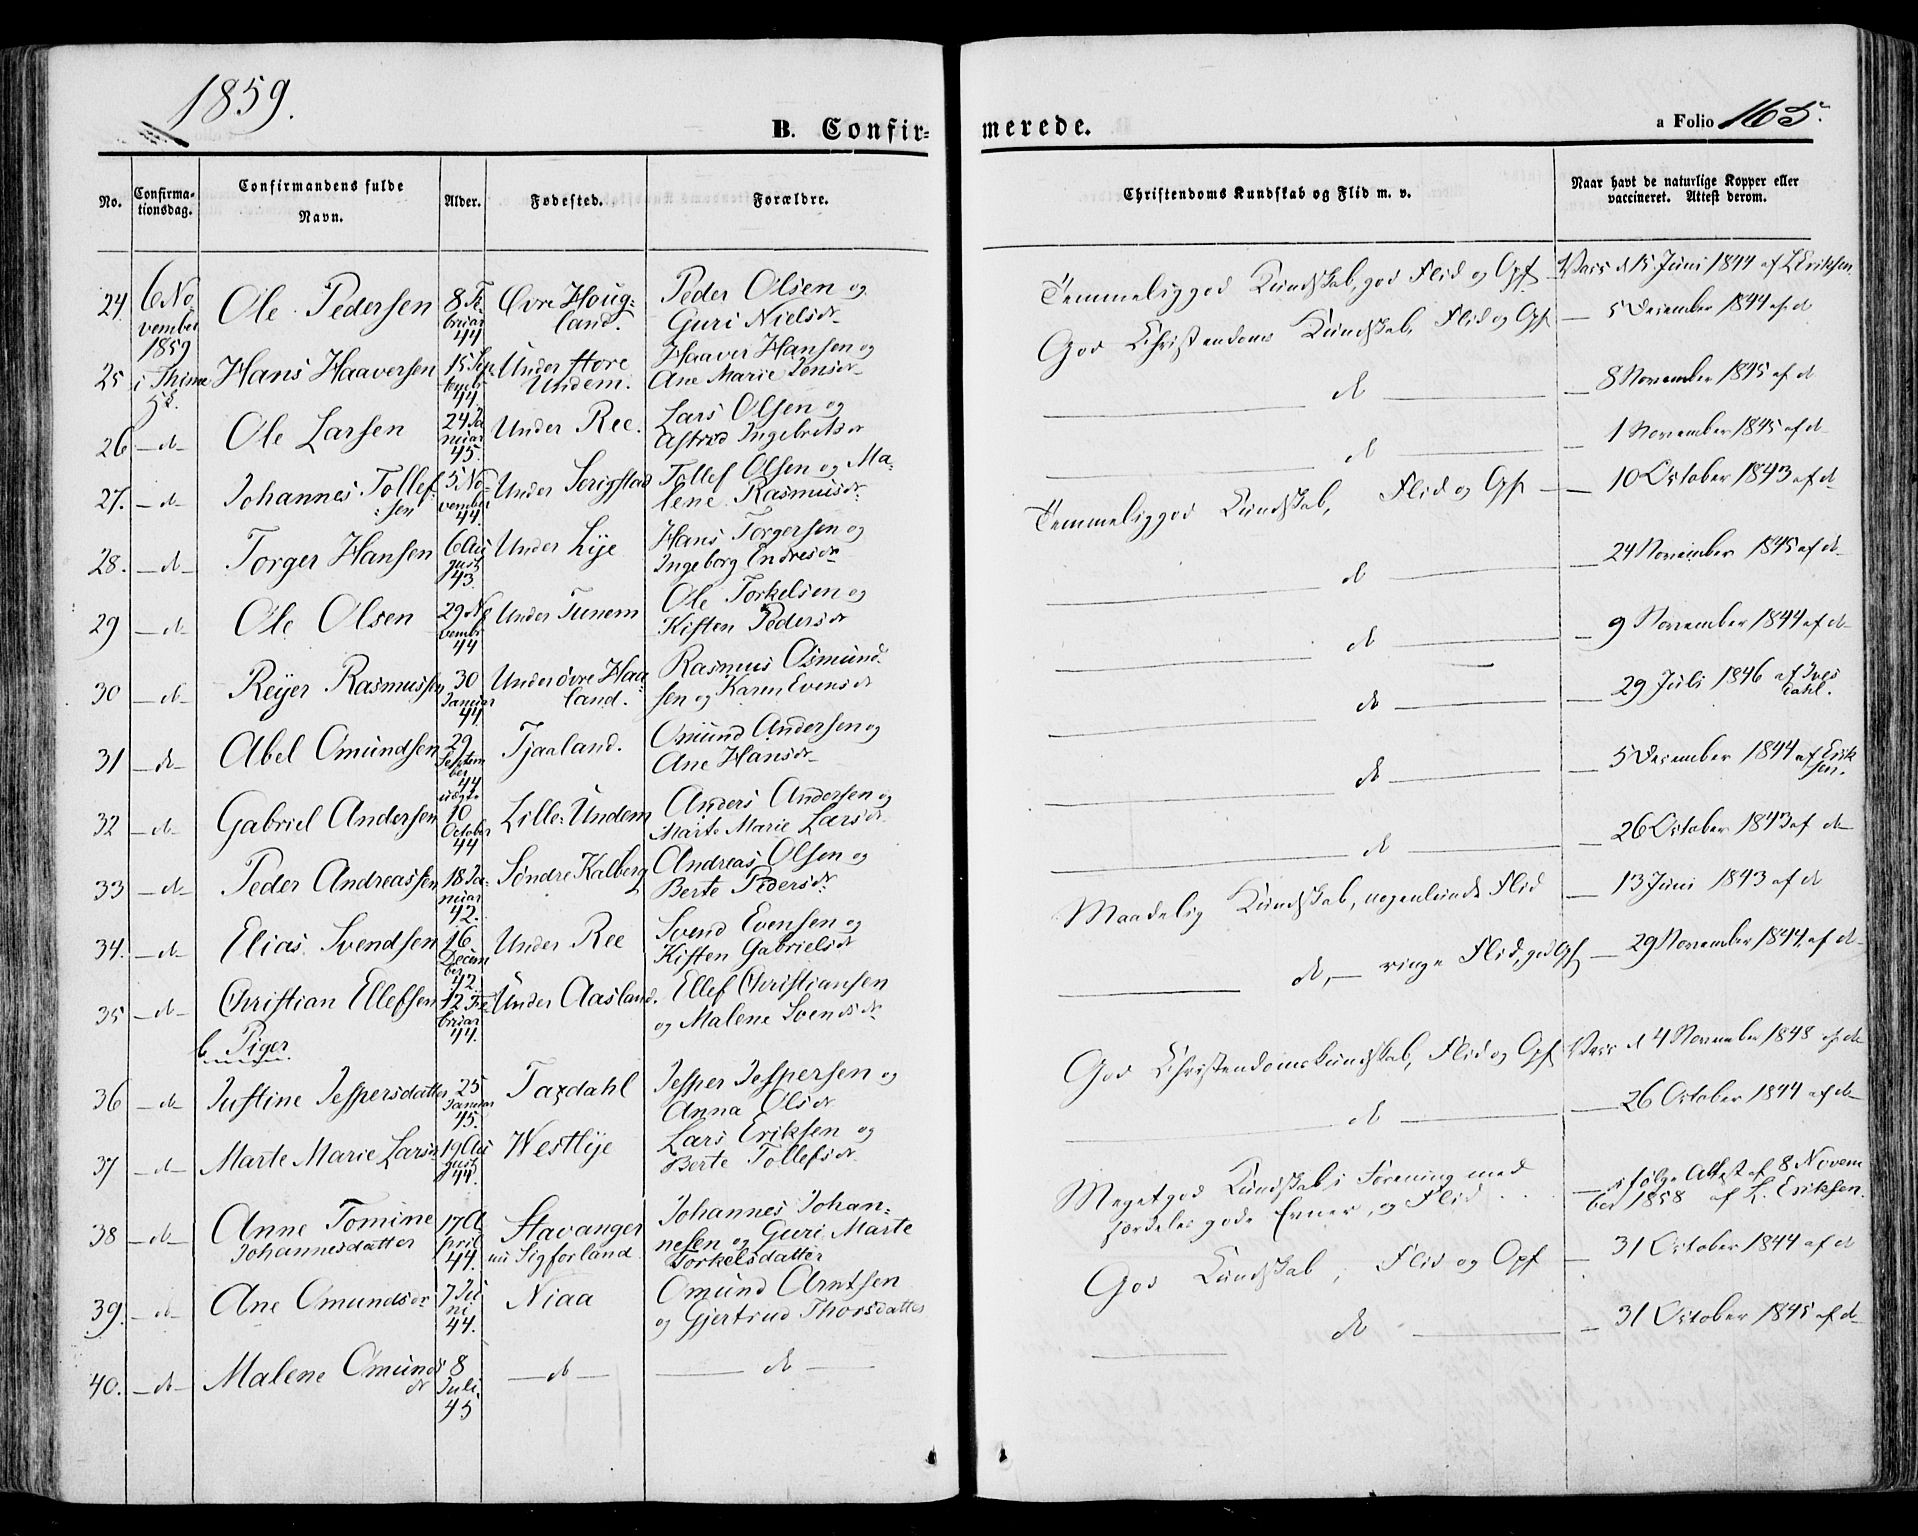 1859.
B. Confir=
merede.
a Folio 165.
No.
Confirma-
tionsdag.
Confirmandens fulde
Navn.
Alder.
Fødested.
Forældre.
Christendoms Kundskab og Flid m. v.
Naar havt de naturlige Kopper eller
vaccineret. Attest derom.
24
6 No
vember
1859
Ole Pedersen
8 Fe-
bruar
44
Øvre Houg-
land.
Peder Olsen og
Guri Nielsdr
Temmeliggod Kundskab, god Flid og Opf
Vacc d 15 Juni 1844 af L Eriksen
25
i Thime
Hans Haaversen
15 Sep
tembr
44.
Under store
Undem.
Haaver Hansen og
Ane Marie Jonsdr
God Christendoms Kundskab, Flid og Opf
5 December 1844 af do
26
do
Ole Larsen
24 Ja
nuar
45.
Under Ree.
Lars Olsen og
Astrid Ingebretsdr
do
8 November 1845 af do
27.
do
Johannes Tollef-
sen
5 No-
vember
44.
Under Serigstad
Tollef Olsen og Ma-
lene Rasmusdr
do
1 November 1845 af do
28.
do
Torger Hansen
6 Au
gust
43.
Under Lye
Hans Torgersen og
Ingeborg Endresdr
Temmeliggod Kundskab, Flid og Opf
10 October 1843 af do
29
do
Ole Olsen
29 No
vembr
44
Under Tunem
Ole Torkelsen og
Kisten Pedersdr
do
24 November 1845 af do
30
do
Reyer Rasmussen
30
Januar
44.
Under øvre Haa-
land.
Rasmus Osmund-
sen og Karen Evensdr
do
9 November 1844 af do
31
do
Abel Omundsen
29
Septem
ber
44
Tjaaland.
Omund Andersen og
Ane Hansdr
do
29 Juli 1846 af Ives
dahl.
32
do
Gabriel Andersen
uægte
10
October
44
Lille Undem
Anders Andersen og
Marte Marie Larsdr
do
5 December 1844 af Erik
sen.
33
do
Peder Andreassen
18 Ja-
nuar
42.
Søndre Kalberg
Andreas Olsen og
Berte Pedersdr
do
26 October 1843 af do
34.
do
Elias Svendsen
16
Decem
ber
42.
Under Ree
Svend Evensen og
Kisten Gabrielsdr
Maadelig Kundskab, nogenlunde Flid
13 Juni 1843 af do
35
do
Christian Ellefsen
12 Fe-
bruar
44.
Under Aasland.
Ellef Christiansen
og Malene Svendsdr
do, ringe Flid, god Opf
29 November 1844 af do
b. Piger
36
do
Justine Jespersdatter
25
Januar
45.
Taxdahl
Jesper Jespersen og
Anna Olsdr
God Christendomskundskab, Flid og Opf
Vacc d 4 November 1848 af do
37
do
Marte Marie Larsdr
19 Au
gust
44.
Westlye
Lars Eriksen og
Berte Tollefsdr
do
26 October 1844 af do
38
do
Anne Tomine
Johannesdatter
17 A
pril
44.
Stavanger
nu Sigforland
Johannes Johan-
nesen og Guri Marte
Torkelsdatter
Megetgod Kundskab i Forening med
særdeles gode Evner, og Flid
ifølge Attest af 8 Novem
ber 1858 af L. Eriksen.
39.
do
Ane Omundsdr
7 Ju
ni
44.
Niaa
Omund Arntsen
og Gjertrud Thorsdatter
God Kundskab, Flid og Opf
31 October 1844 af do
40.
do
Malene Omunds
dr
8
Juli
45
do
do
do
31 October 1845 af do